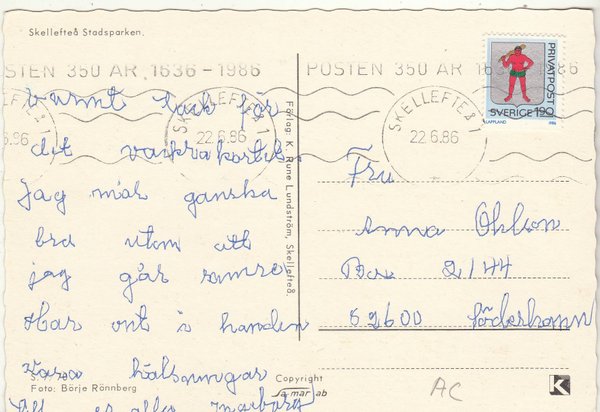 Skellefteå Stadsparken.
POSTEN 350 ÅR 1636-1986
POSTEN 350 ÅR 1636-1986
SKELLEFTEÅ 1
22.6.86
SKELLEFTEÅ 1
22.6.86
PRIVATPOST
SVERIGE 190
LAPPLAND
1986
tack för
det vackra kortet
jag mår ganska
bra utom att
jag går
Har ont i handen
hälsningar
till er alla
Förlag: K. Rune Lundström, Skellefteå.
Fru
Anna Ohlson
Box 2144
82600 Söderhamn
Foto: Börje Rönnberg
Copyright
sa-mar ab
K
AC